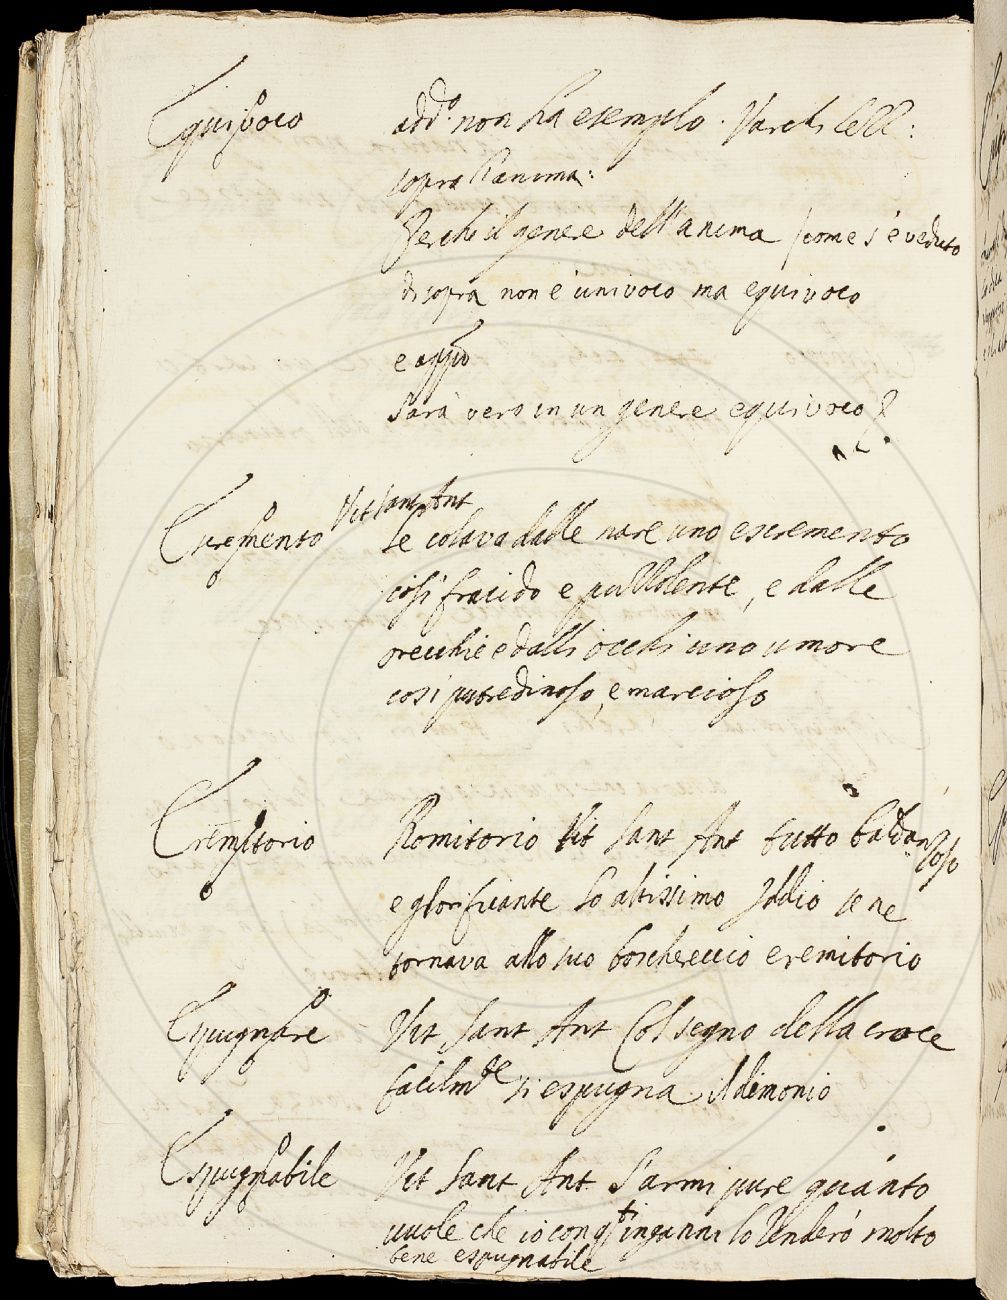 Equivoco add.º non ha esempio. Varchi Lell:
sopra l'anima:
Perchè il genere dell'anima, come s'è veduto
di sopra non è univoco ma equivoco
e appo
Sara vero in un genere equivoco
Escremento Vit Sant Ant
Le colava dalle nare uno escremento
così fracido e pullolente, e dalle
orecchie e dalli occhi uno umore
così putredinoso, e marcioso
Eremitorio Romitorio Vit Sant Ant tutto baldanzoso
e glorificante lo altissimo Iddio se ne
tornava allo suo boschereccio eremitorio
Espugnare Vit Sant Ant Col segno della croce
facilm.te si espugna il dimonio
Espugnabile Vit Sant Ant S'armi pure quanto
vuole che io con q.ti inganni lo renderò molto
bene espugnabile